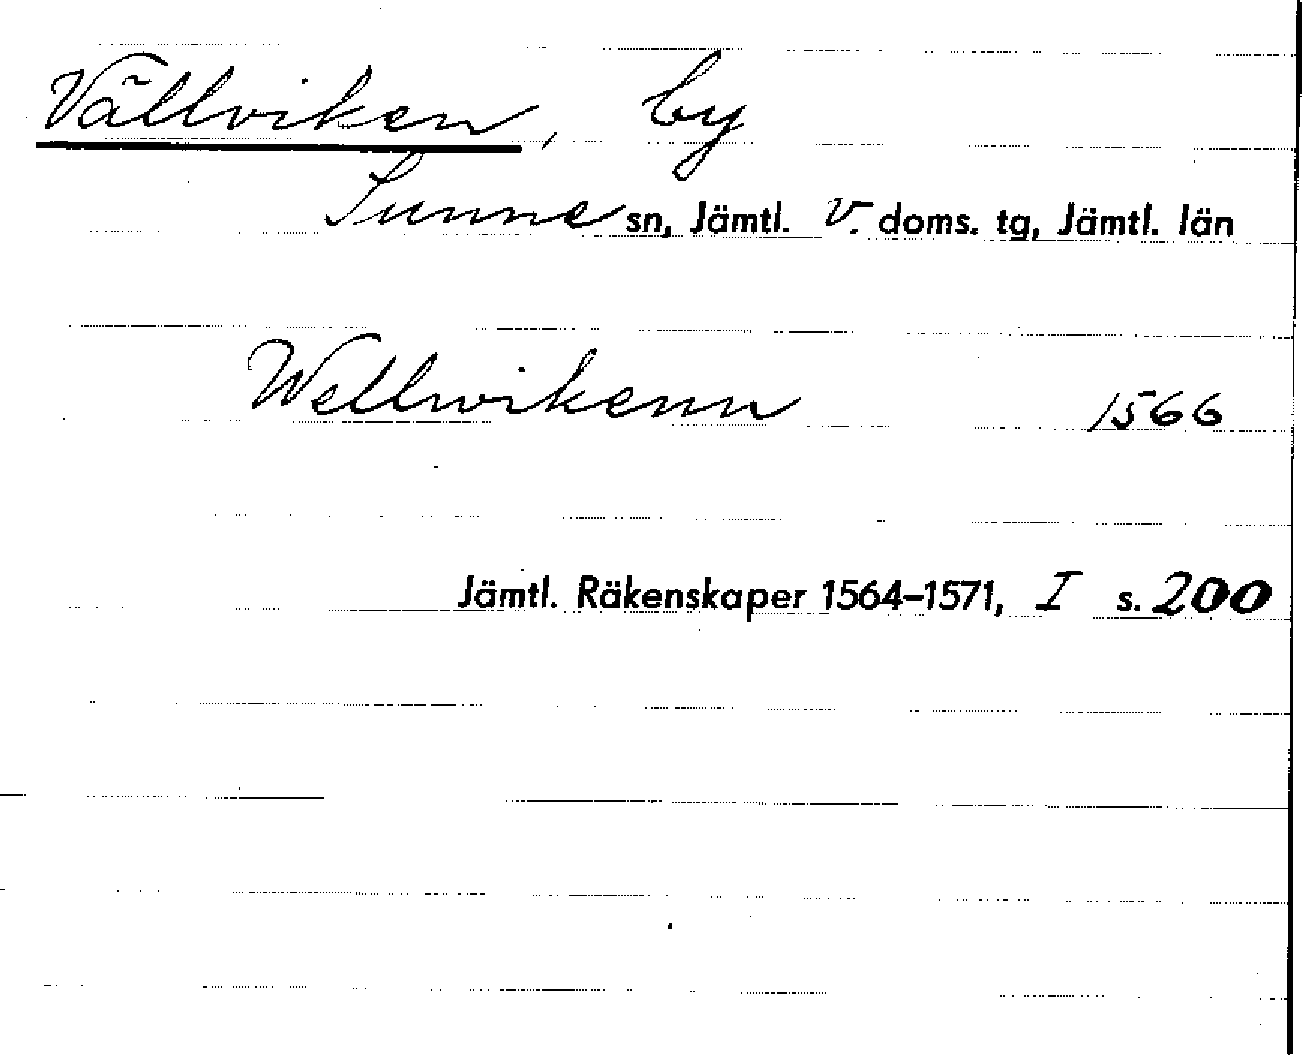 Vällviken, by
Sunne sn, Jämtl. v. doms. tg, Jämtl. län
Wellwikenn 1566
Jämtl. Räkenskaper 1564–1571, I s. 200